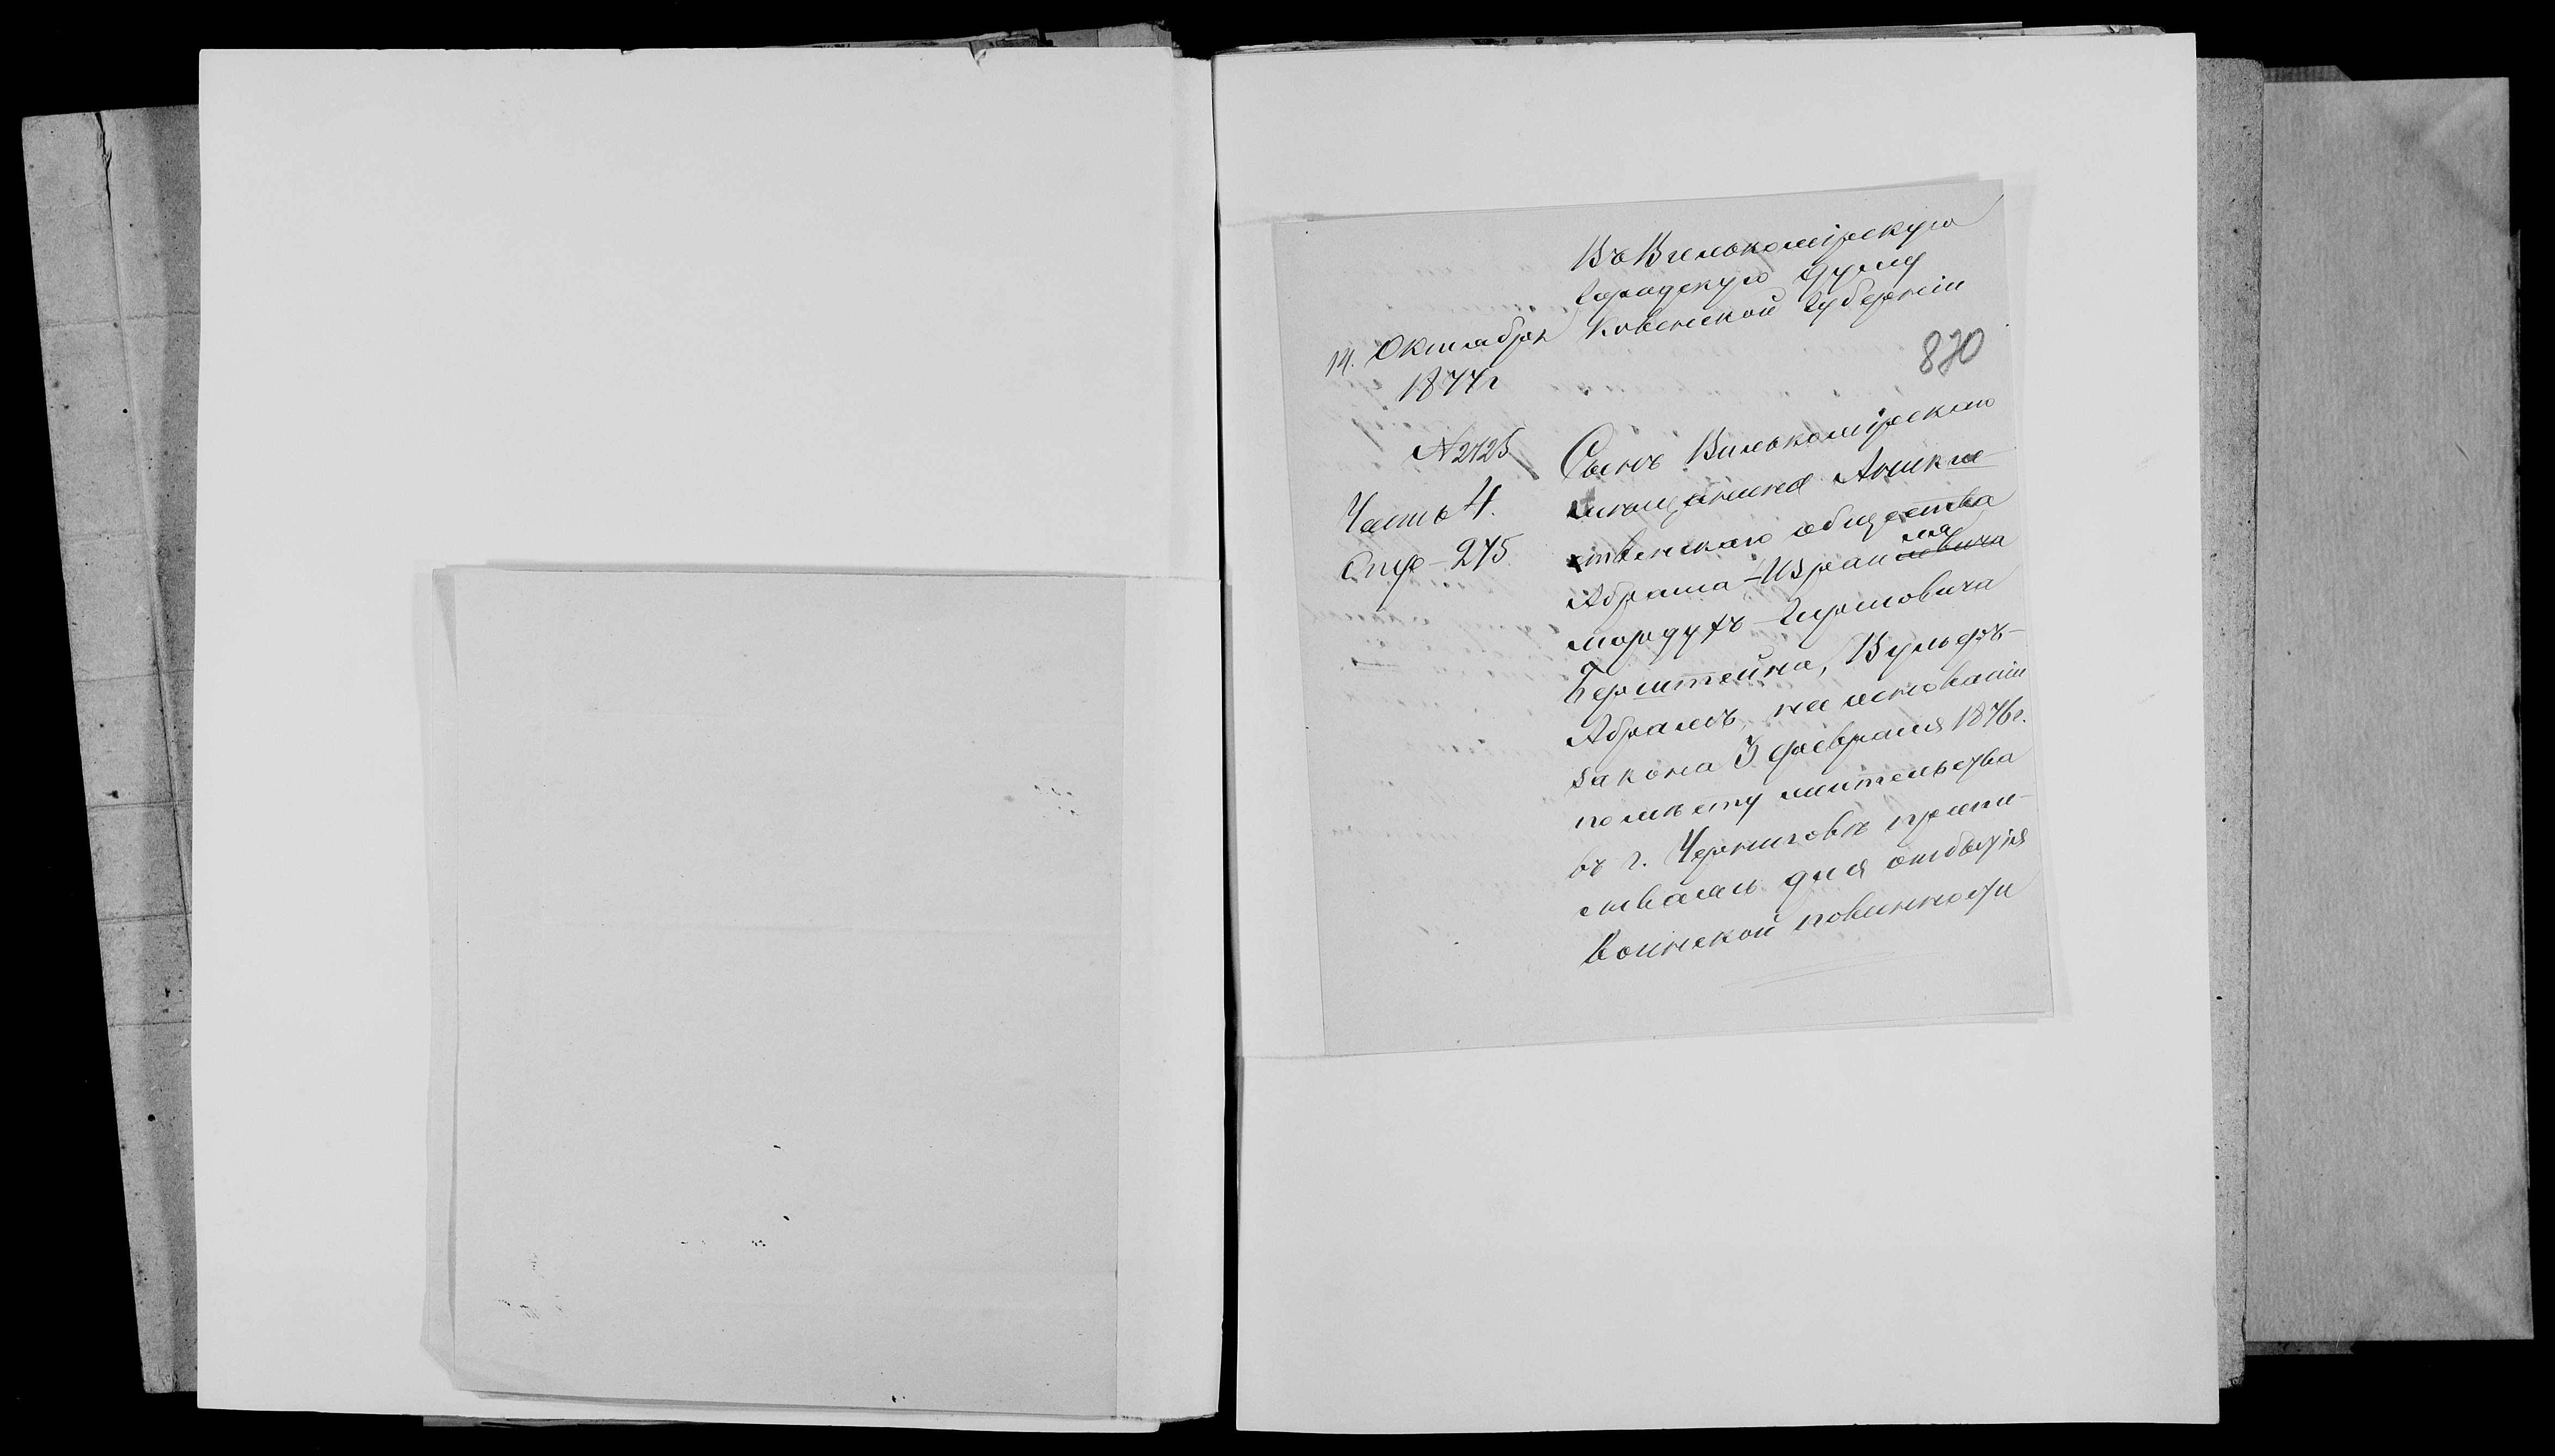 Въ Вилькомірскую
Городскую Думу
Ковенской Губерніи
14. Октября
1877 г
870
№ 2125
Часть 4.
Стр - 275
Сынъ Вилькомірскаго
мещанина Аникш
тенскаго общества
Абрама - Израиля
Мордухъ - Гиршовича
Берштейна, Вульфъ-
Абрамъ, на основаніи
закона 3 февраля 1876 г.
по мѣсту жительства
въ г. Черниговѣ припи-
сывался для отбытія
воинской повинности